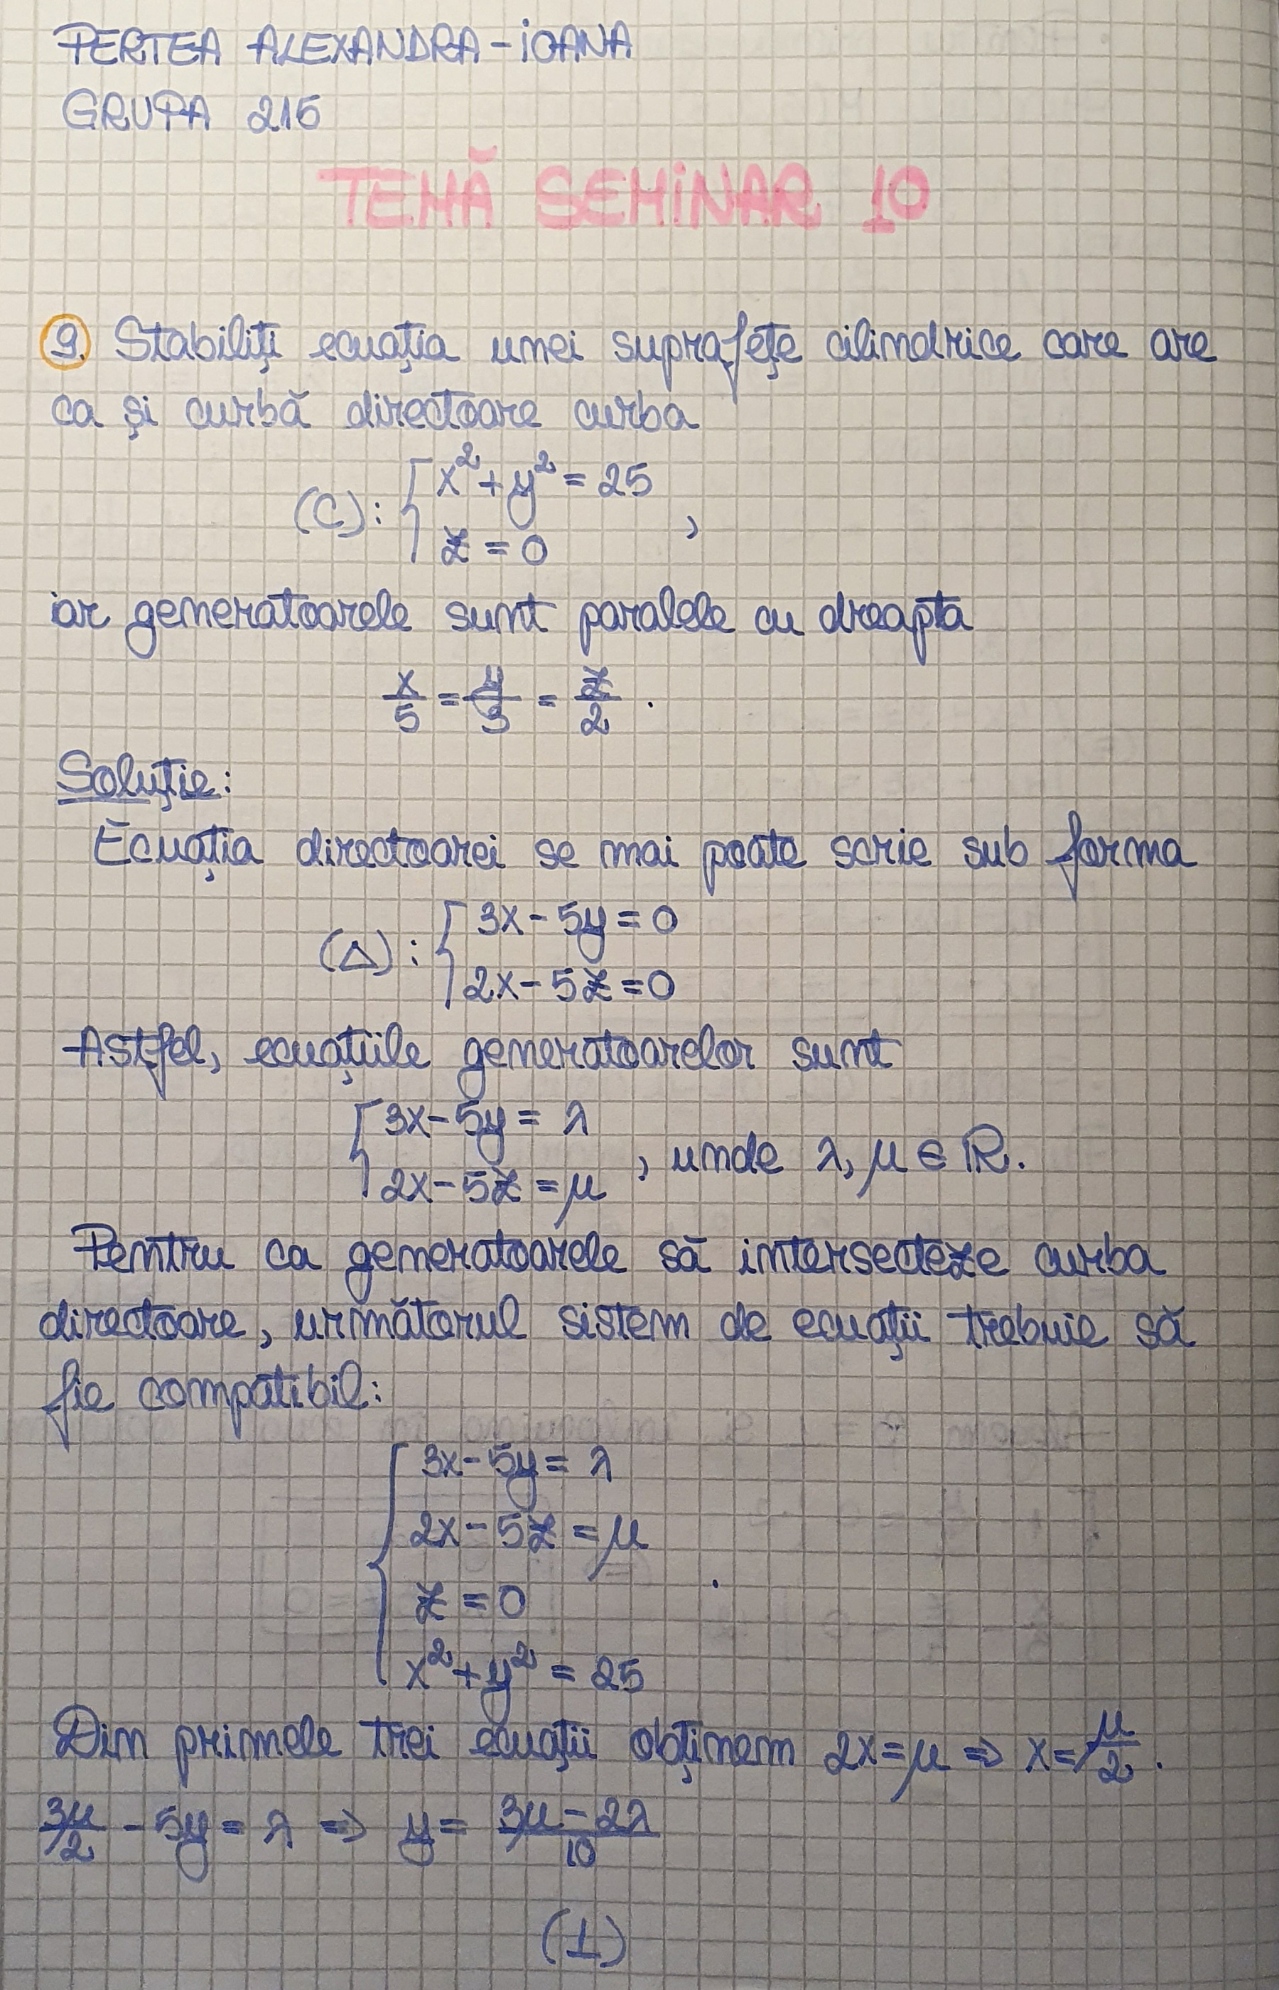 PERTEA ALEXANDRA-IOANA
GRUPA 215
TEMĂ SEMINAR 10
9. Stabiliți ecuația unei suprafețe cilindrice care are
ca și curbă directoare curba
(C): { x² + y² = 25
z = 0 ,
iar generatoarele sunt paralele cu dreapta
x/5 = y/3 = z/2 .
Soluție:
Ecuația directoarei se mai poate scrie sub forma
(Δ): { 3x - 5y = 0
2x - 5z = 0
Astfel, ecuațiile generatoarelor sunt
{ 3x - 5y = λ
2x - 5z = μ , unde λ, μ ∈ ℝ.
Pentru ca generatoarele să intersecteze curba
directoare, următorul sistem de ecuații trebuie să
fie compatibil:
{ 3x - 5y = λ
2x - 5z = μ
z = 0 .
x² + y² = 25
Din primele trei ecuații obținem 2x = μ ⇒ x = μ/2 .
3μ/2 - 5y = λ ⇒ y = (3μ - 2λ)/10
(1)